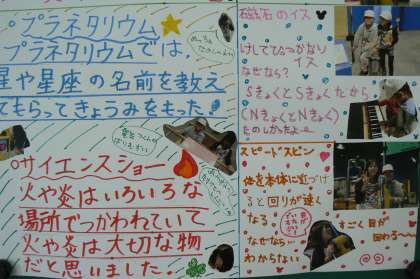 プラネタリウム
プラネタリウムでは、
星や星座の名前を教え
てもらってきょうみをもった!
サイエンスショー
火や炎はいろいろな
場所でつかわれていて
火や炎は大切な物
だと思いました。
磁石のイス
けしてひっつかない
イス
なぜなら?
SきょくとSきょくだから
(NきょくとNきょく)
たのしかったよ
スピードスピン
体を本体に近づけ
ると回りが速く
なる
なぜなら…
わからない。
すごく目が
回るう~